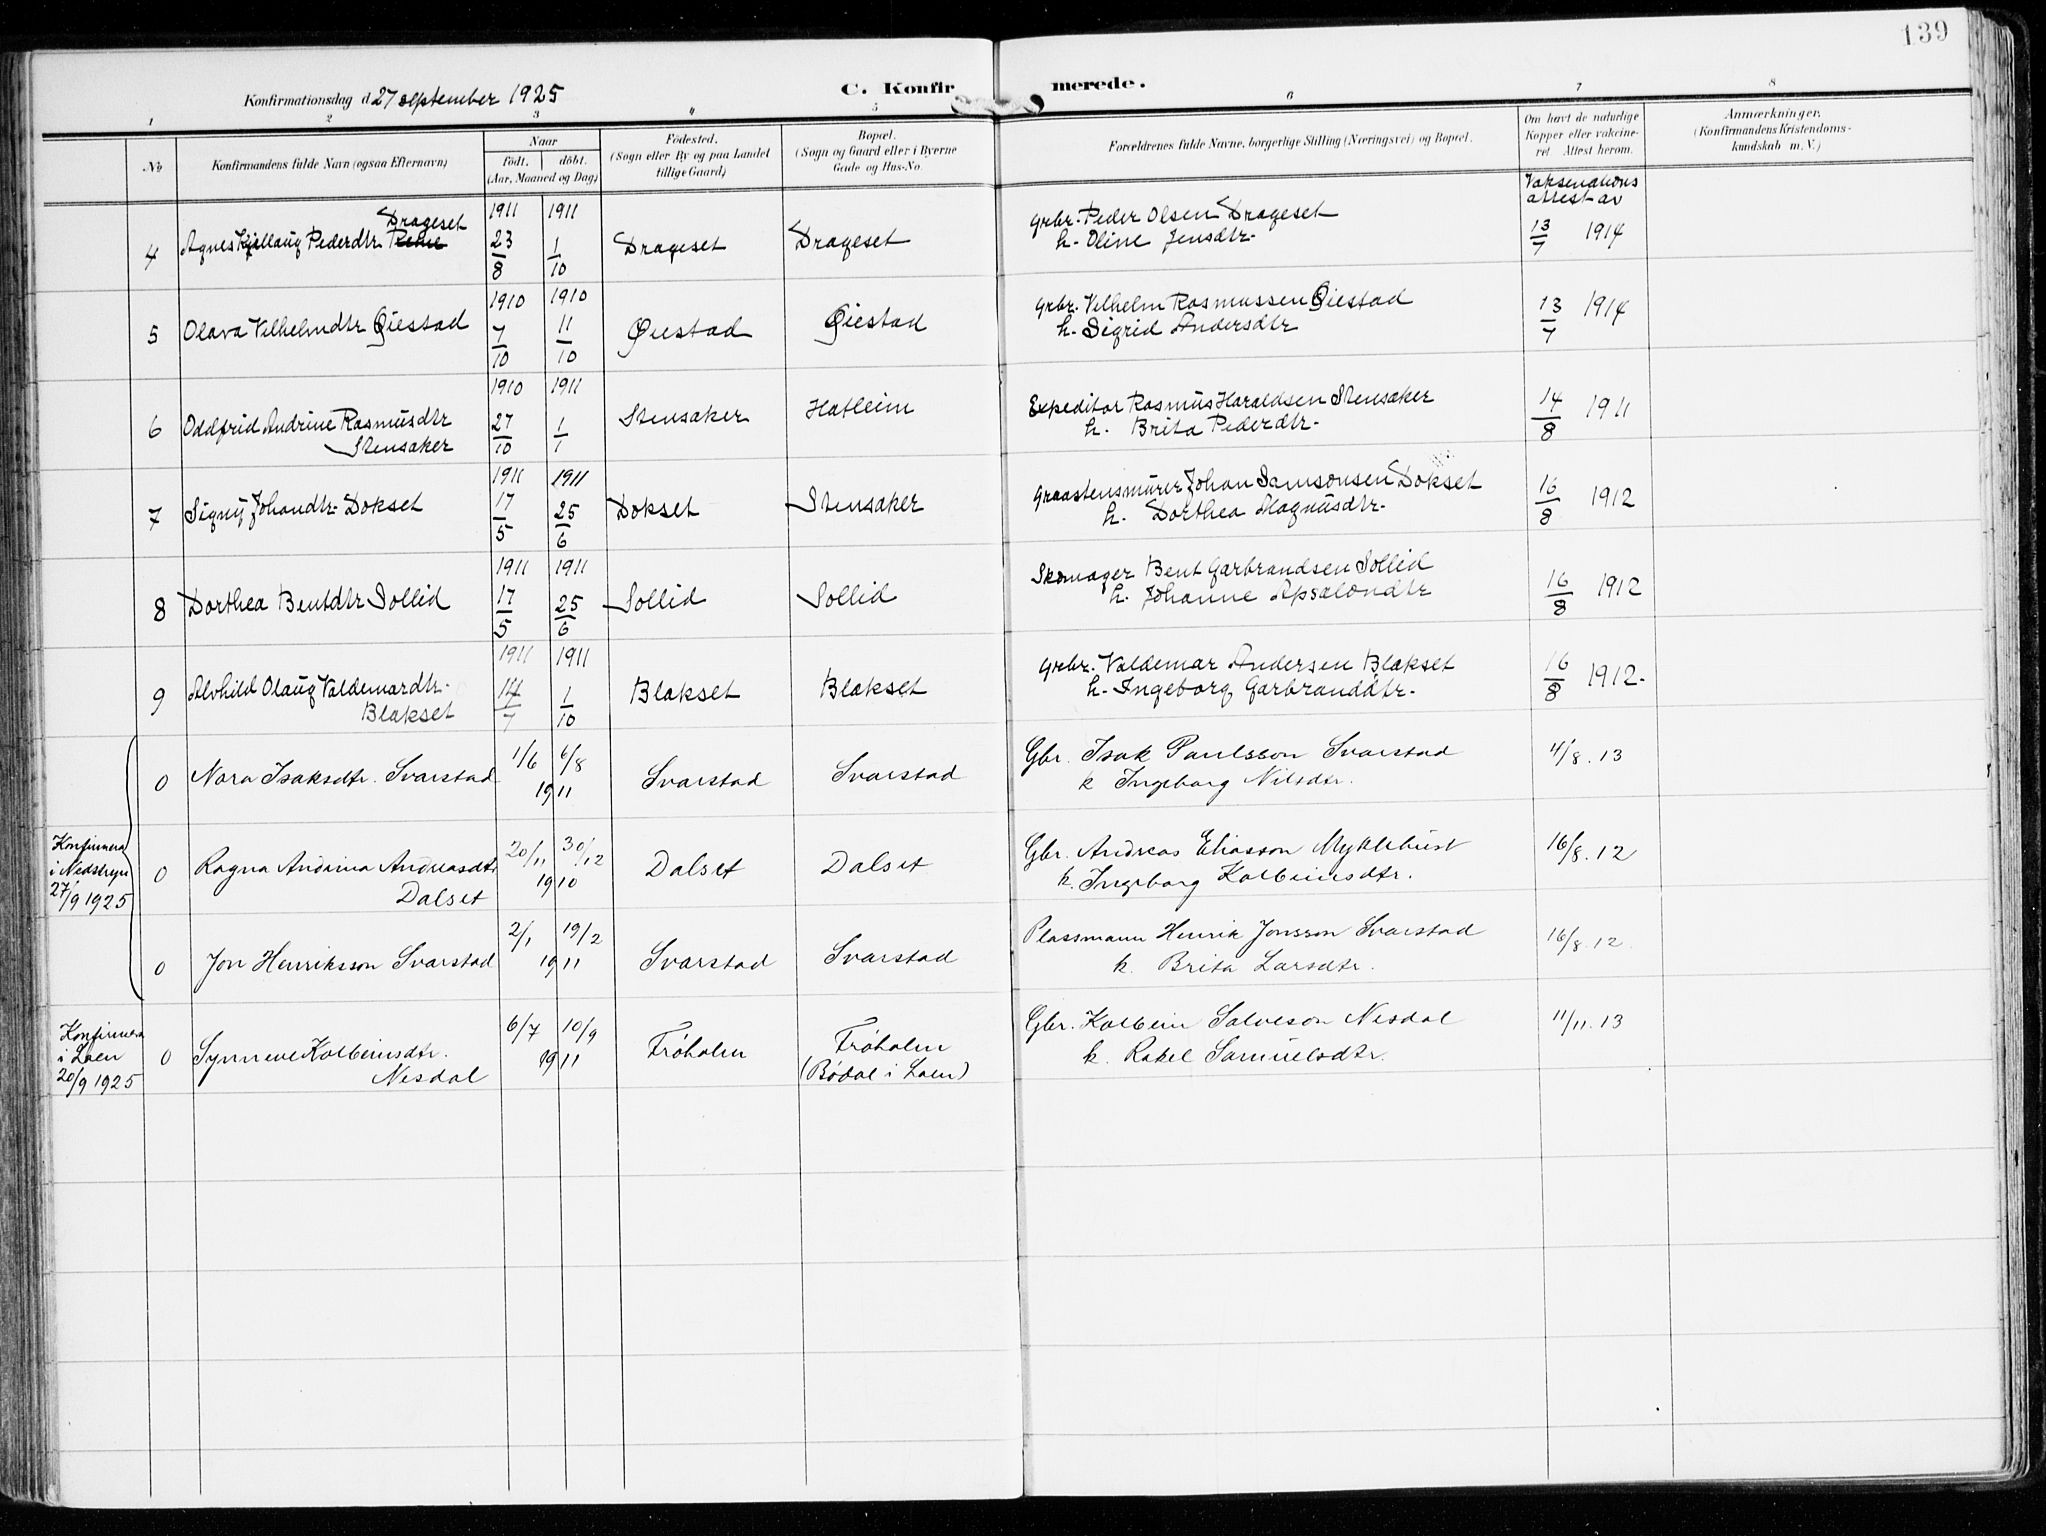 139
Konfirmationsdag d. 27 September 1925
C. Konfirmerede.
1 2 3 4 5 6 7 8
No
Konfirmandens fulde Navn (ogsaa Efternavn)
Naar
födt. döbt.
(Aar, Maaned og Dag)
Födested.
(Sogn eller By og paa Landet tillige Gaard)
Bopæl.
(Sogn og Gaard eller i Byerne Gade og Hus-No.
Forældrenes fulde Navne, borgerlige Stilling (Næringsvei) og Bopæl.
Om havt de naturlige Kopper eller vaccineret. Attest herom.
Anmærkninger.
(Konfirmandens Kristendomskundskab m. V.)
Vaksinations attest av
4 Agnes Kjellaug Pederdtr Drageset 1911 23/8 1911 1/10 Drageset Drageset Grbr. Peder Olsen Drageset
h. Oline Jensdtr. 13/7 1914
5 Olava Vilhelmdtr Øiestad 1910 7/10 1910 11/10 Øiestad Øiestad Grbr. Vilhelm Rasmussen Øiestad
h. Sigrid Andersdtr 13/7 1914
6 Oddfrid Andrine Rasmusdtr
Stensaker 1910 27/10 1911 1/1 Stensaker Hatleim Expeditør Rasmus Haraldsen Stensaker
h. Brita Pederdtr. 14/8 1911
7 Signy Johandtr. Dokset 1911 17/5 1911 25/6 Dokset Stensaker Graastensmurer Johan Samsonsen Dokset
h. Dorthea Magnusdtr. 16/8 1912
8 Dorthea Bentdtr Sollid 1911 17/5 1911 25/6 Sollid Sollid Skomager Bent Garbrandsen Sollid
h. Johanne Apsalondtr 16/8 1912
9 Alvhild Olaug Valdemardtr.
Blakset 1911 14/7 1911 1/10 Blakset Blakset Grbr. Valdemar Andersen Blakset
h. Ingeborg Garbranddtr. 16/8 1912.
0 Nora Isaksdtr. Svarstad 1/6 6/8 1911 Svarstad Svarstad Gbr. Isak Paulsson Svarstad
k. Ingeborg Nilsdtr. 4/8. 13
Konfirmera
i Nedstryn
27/9 1925
0 Ragna Andrina Andreasdtr
Dalset 20/11 30/12 1910 Dalset Dalset Gbr. Andreas Eliasson Myklebust
k. Ingeborg Kolbeinsdtr. 16/8. 12
0 Jon Henriksson Svarstad 2/1 19/2 1911 Svarstad Svarstad Plassmann Henrik Jonsson Svarstad
k. Brita Larsdtr. 16/8. 12.
Konfirmera
i Loen
20/9 1925
0 Synneve Kolbeinsdtr.
Nesdal 6/7 10/9 1911 Frøholm Frøholm
(Bødal i Loen) Gbr. Kolbein Salveson Nesdal
k. Rakel Samuelsdtr. 11/11. 13